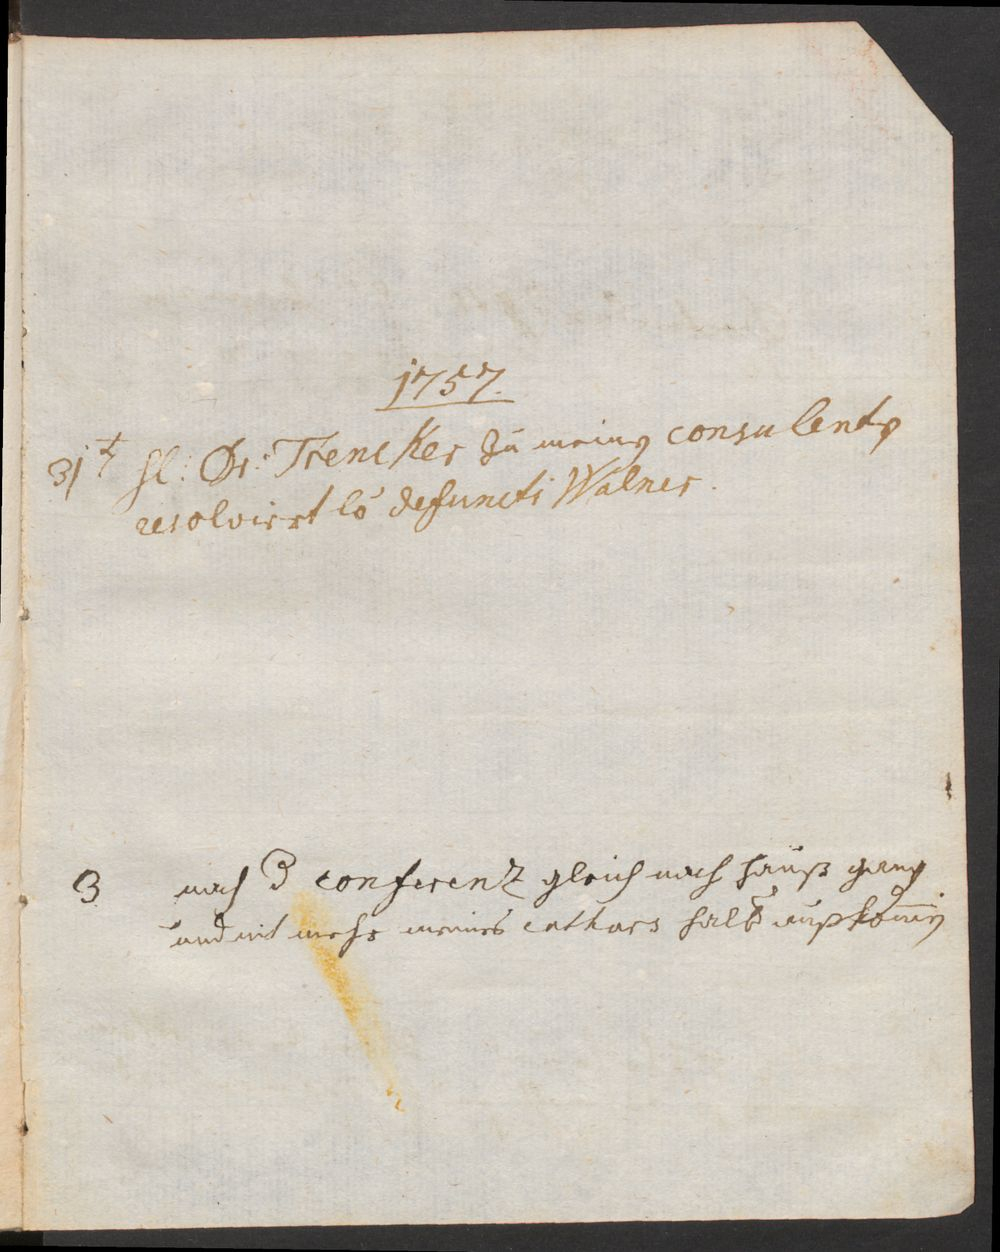 1757.
31t H: Dr: Trencker zu meinen consulenten
resolvirt lo defuncti Walner.
3 nach d conferenz gleich nach hauß gang
und nit mehr meines cathars halb außkommen